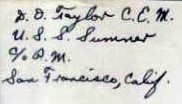 D. D. Taylor C.E.M.
U. S. S. Sumner
c/o P.M.
San Francisco, Calif.